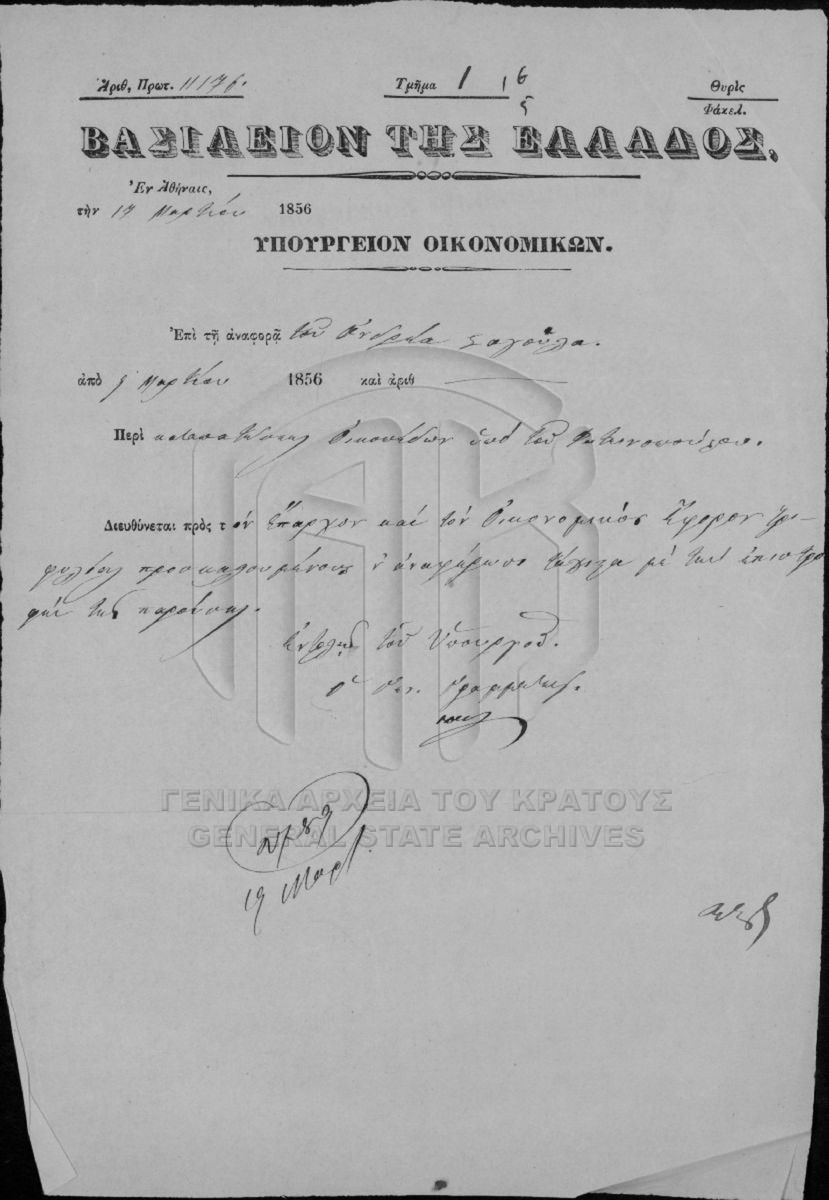 Ἀριθ. Πρωτ. 11176.
Τμῆμα 1
Θυρὶς
Φάκελ.
ΒΑΣΙΛΕΙΟΝ ΤΗΣ ΕΛΛΑΔΟΣ,
Ἐν Ἀθήναις,
τὴν 17 Μαρτίου 1856
ΥΠΟΥΡΓΕΙΟΝ ΟΙΚΟΝΟΜΙΚΩΝ.
Ἐπὶ τῇ ἀναφορᾷ τοῦ Ἀνδρέα
ἀπὸ 5 Μαρτίου 1856 καὶ ἀριθ
Περὶ καταπατήσεως οἰκοπέδων ὑπὸ τοῦ
Διευθύνεται πρὸς τὸν Ἔπαρχον καὶ τὸν Οἰκονομικὸν Ἔφορον Τρι-
φυλίας προσκαλουμένους ν' ἀναφέρωσι τάχιστα μὲ τὴν ἐπιστρο-
φὴν τῆς παρούσης.
Ἐντολῇ τοῦ Ὑπουργοῦ.
Ὁ Γραμματεὺς.
ΓΕΝΙΚΑ ΑΡΧΕΙΑ ΤΟΥ ΚΡΑΤΟΥΣ
GENERAL STATE ARCHIVES
19 Μαρτ.